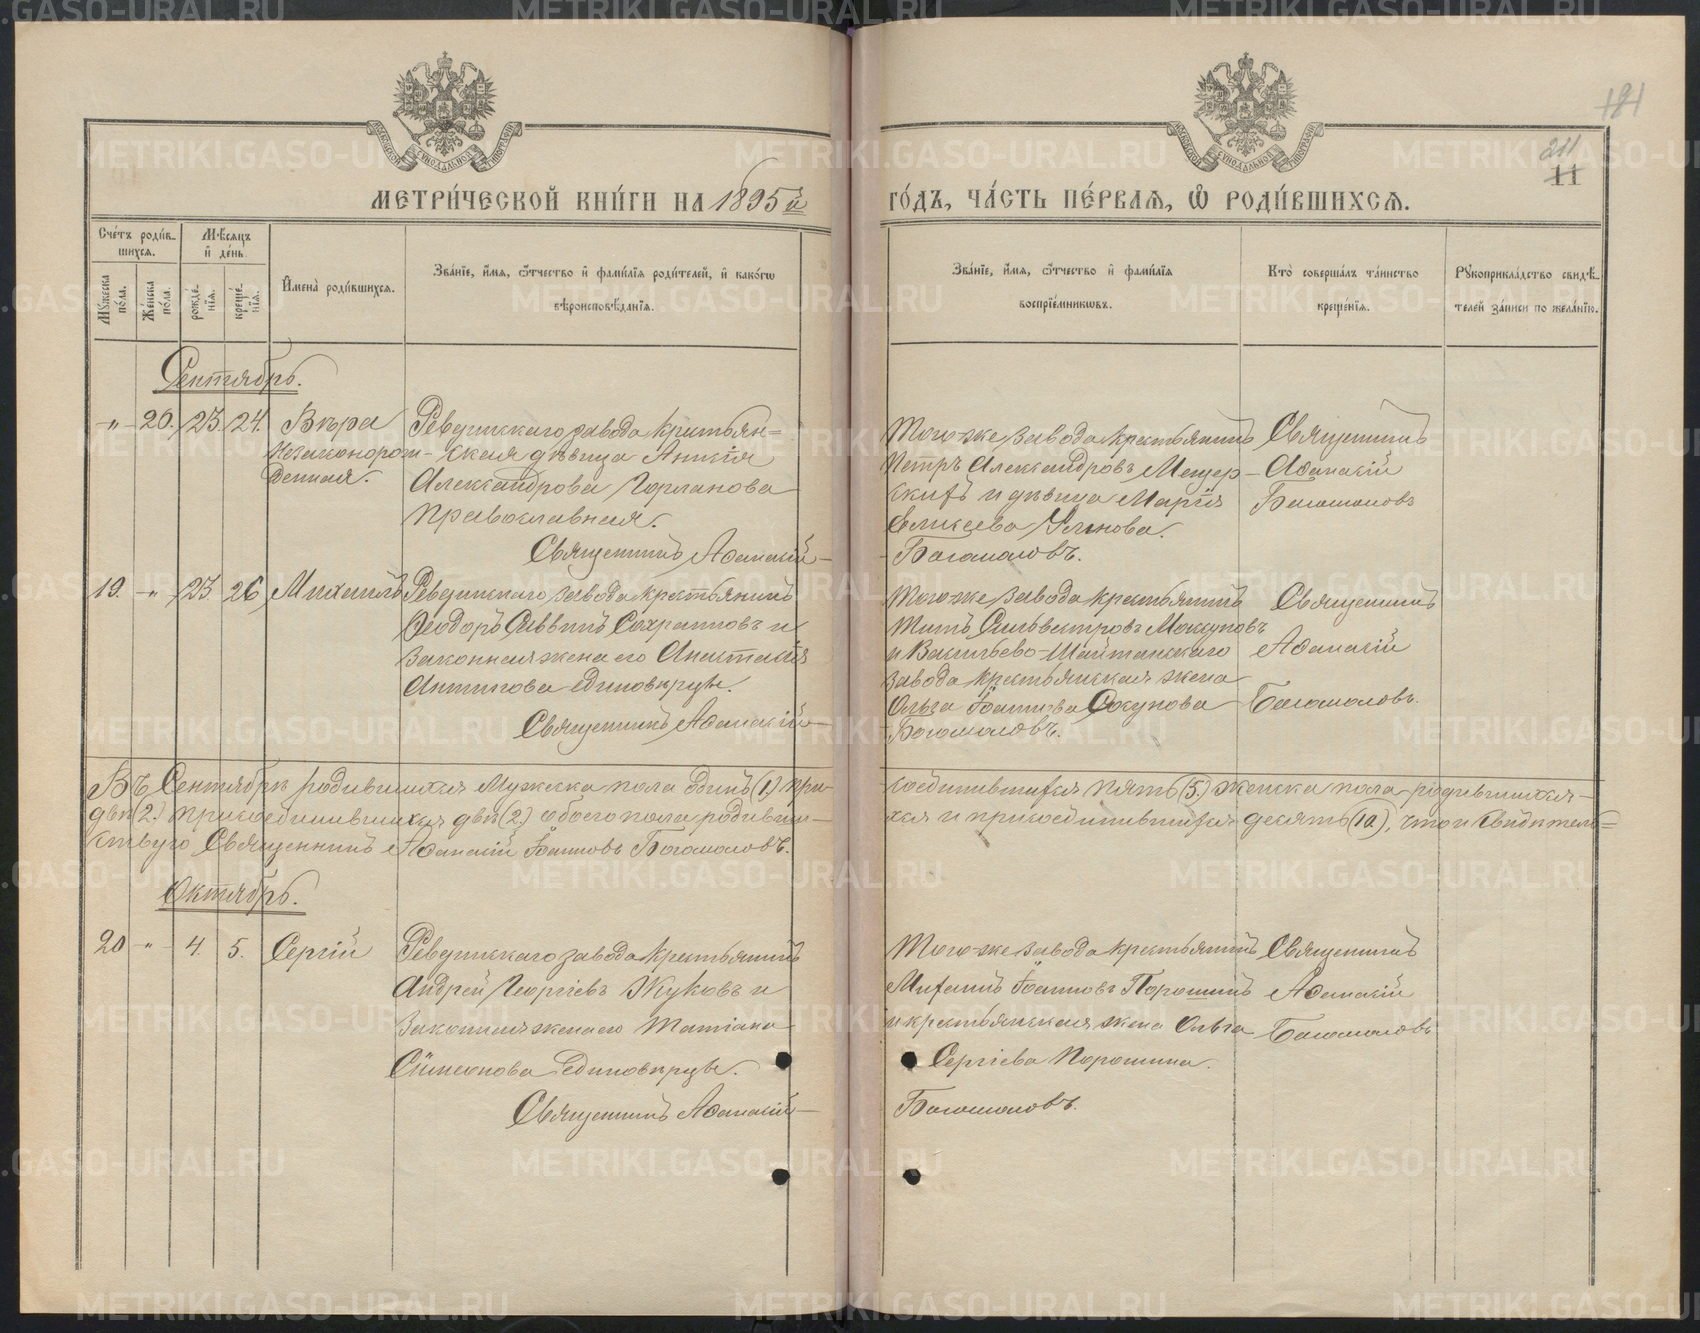 181
211
11
МЕТРИ́ЧЕСКОЙ КНИ́ГИ НА 1895й ГО́ДЪ, ЧА́СТЬ ПЕ́РВАѦ, Ѡ РОДИ́ВШИХСѦ.
Сче́тъ роди́в-
шихсѧ.
Мꙋ́жеска по́ла.
Же́нска по́ла.
Мѣ́сѧцъ
и҆ де́нь
рожде́нїѧ.
креще́нїѧ.
И҆мена̀ роди́вшихсѧ.
Зва́нїе, и҆́мѧ, ѻ҆́тчество и҆ фами́лїѧ роди́телей, и҆ како́гѡ
вѣроисповѣ́данїѧ.
Зва́нїе, и҆́мѧ, ѻ҆́тчество и҆ фами́лїѧ
воспрїе́мникѡвъ.
Кто̀ соверша́лъ та́инство
креще́нїѧ.
Рꙋкоприкла́дство свидѣ́-
телей за́писи по жела́нїю.
Сентябрь.
-„- 20. 23. 24. Вѣра
Незаконорож-
денная.
Ревдинскаго завода крестьян=
ская дѣвица
Александрова Горланова
Православная.
Священникъ Аѳанасій
Того-же завода крестьянинъ
Петръ Александровъ Мещер-
скихъ и дѣвица Марія
Елисеева
Богомоловъ.
Священникъ
Аѳанасій
Богомоловъ
19. -„- 23. 26 Михаилъ
Ревдинскаго завода крестьянинъ
Ѳеодоръ Саввинъ и
законная жена его Анастасія
Антипова единовѣрцы.
Священникъ Аѳанасій
Того-же завода крестьянинъ
Титъ Сильвестровъ
и Васильево-Шайтанскаго
завода крестьянская жена
Ольга Іоаннова
Богомоловъ.
Священникъ
Аѳанасій
Богомоловъ.
Въ Сентябрѣ родившихся Мужеска пола одинъ (1.) при-
соединившихся пять (5.) женска пола родившихся
двѣ (2.) присоединившихся двѣ (2.) обоего пола родивши-
хся и присоединившихся десять (10), что и свидѣтель=
ствую Священникъ Аѳанасій Іоанновъ Богомоловъ.
Октябрь.
20 -„- 4. 5. Сергій
Ревдинскаго завода крестьянинъ
Андрей Георгіевъ Жуковъ и
законная жена его Татіана
Симеонова Единовѣрцы.
Священникъ Аѳанасій
Того-же завода крестьянинъ
Михаилъ Іоанновъ Порошинъ
и крестьянская жена Ольга
Сергіева Порошина.
Богомоловъ.
Священникъ
Аѳанасій
Богомоловъ
METRIKI.GASO-URAL.RU